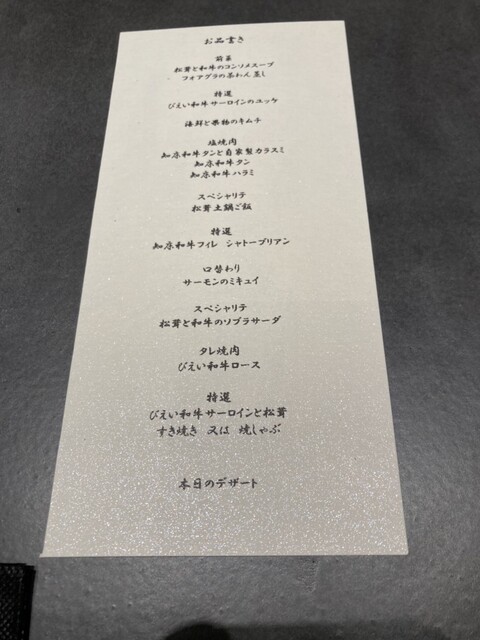 お品書き
前菜
松茸と和牛のコンソメスープ
フォアグラの茶わん蒸し
特選
びえい和牛サーロインのユッケ
海鮮と果物のキムチ
塩焼肉
知床和牛タンと自家製カラスミ
知床和牛タン
知床和牛ハラミ
スペシャリテ
松茸土鍋ご飯
特選
知床和牛フィレ シャトーブリアン
口替わり
サーモンのミキュイ
スペシャリテ
松茸と和牛のソブラサーダ
タレ焼肉
びえい和牛ロース
特選
びえい和牛サーロインと松茸
すき焼き 又は 焼しゃぶ
本日のデザート